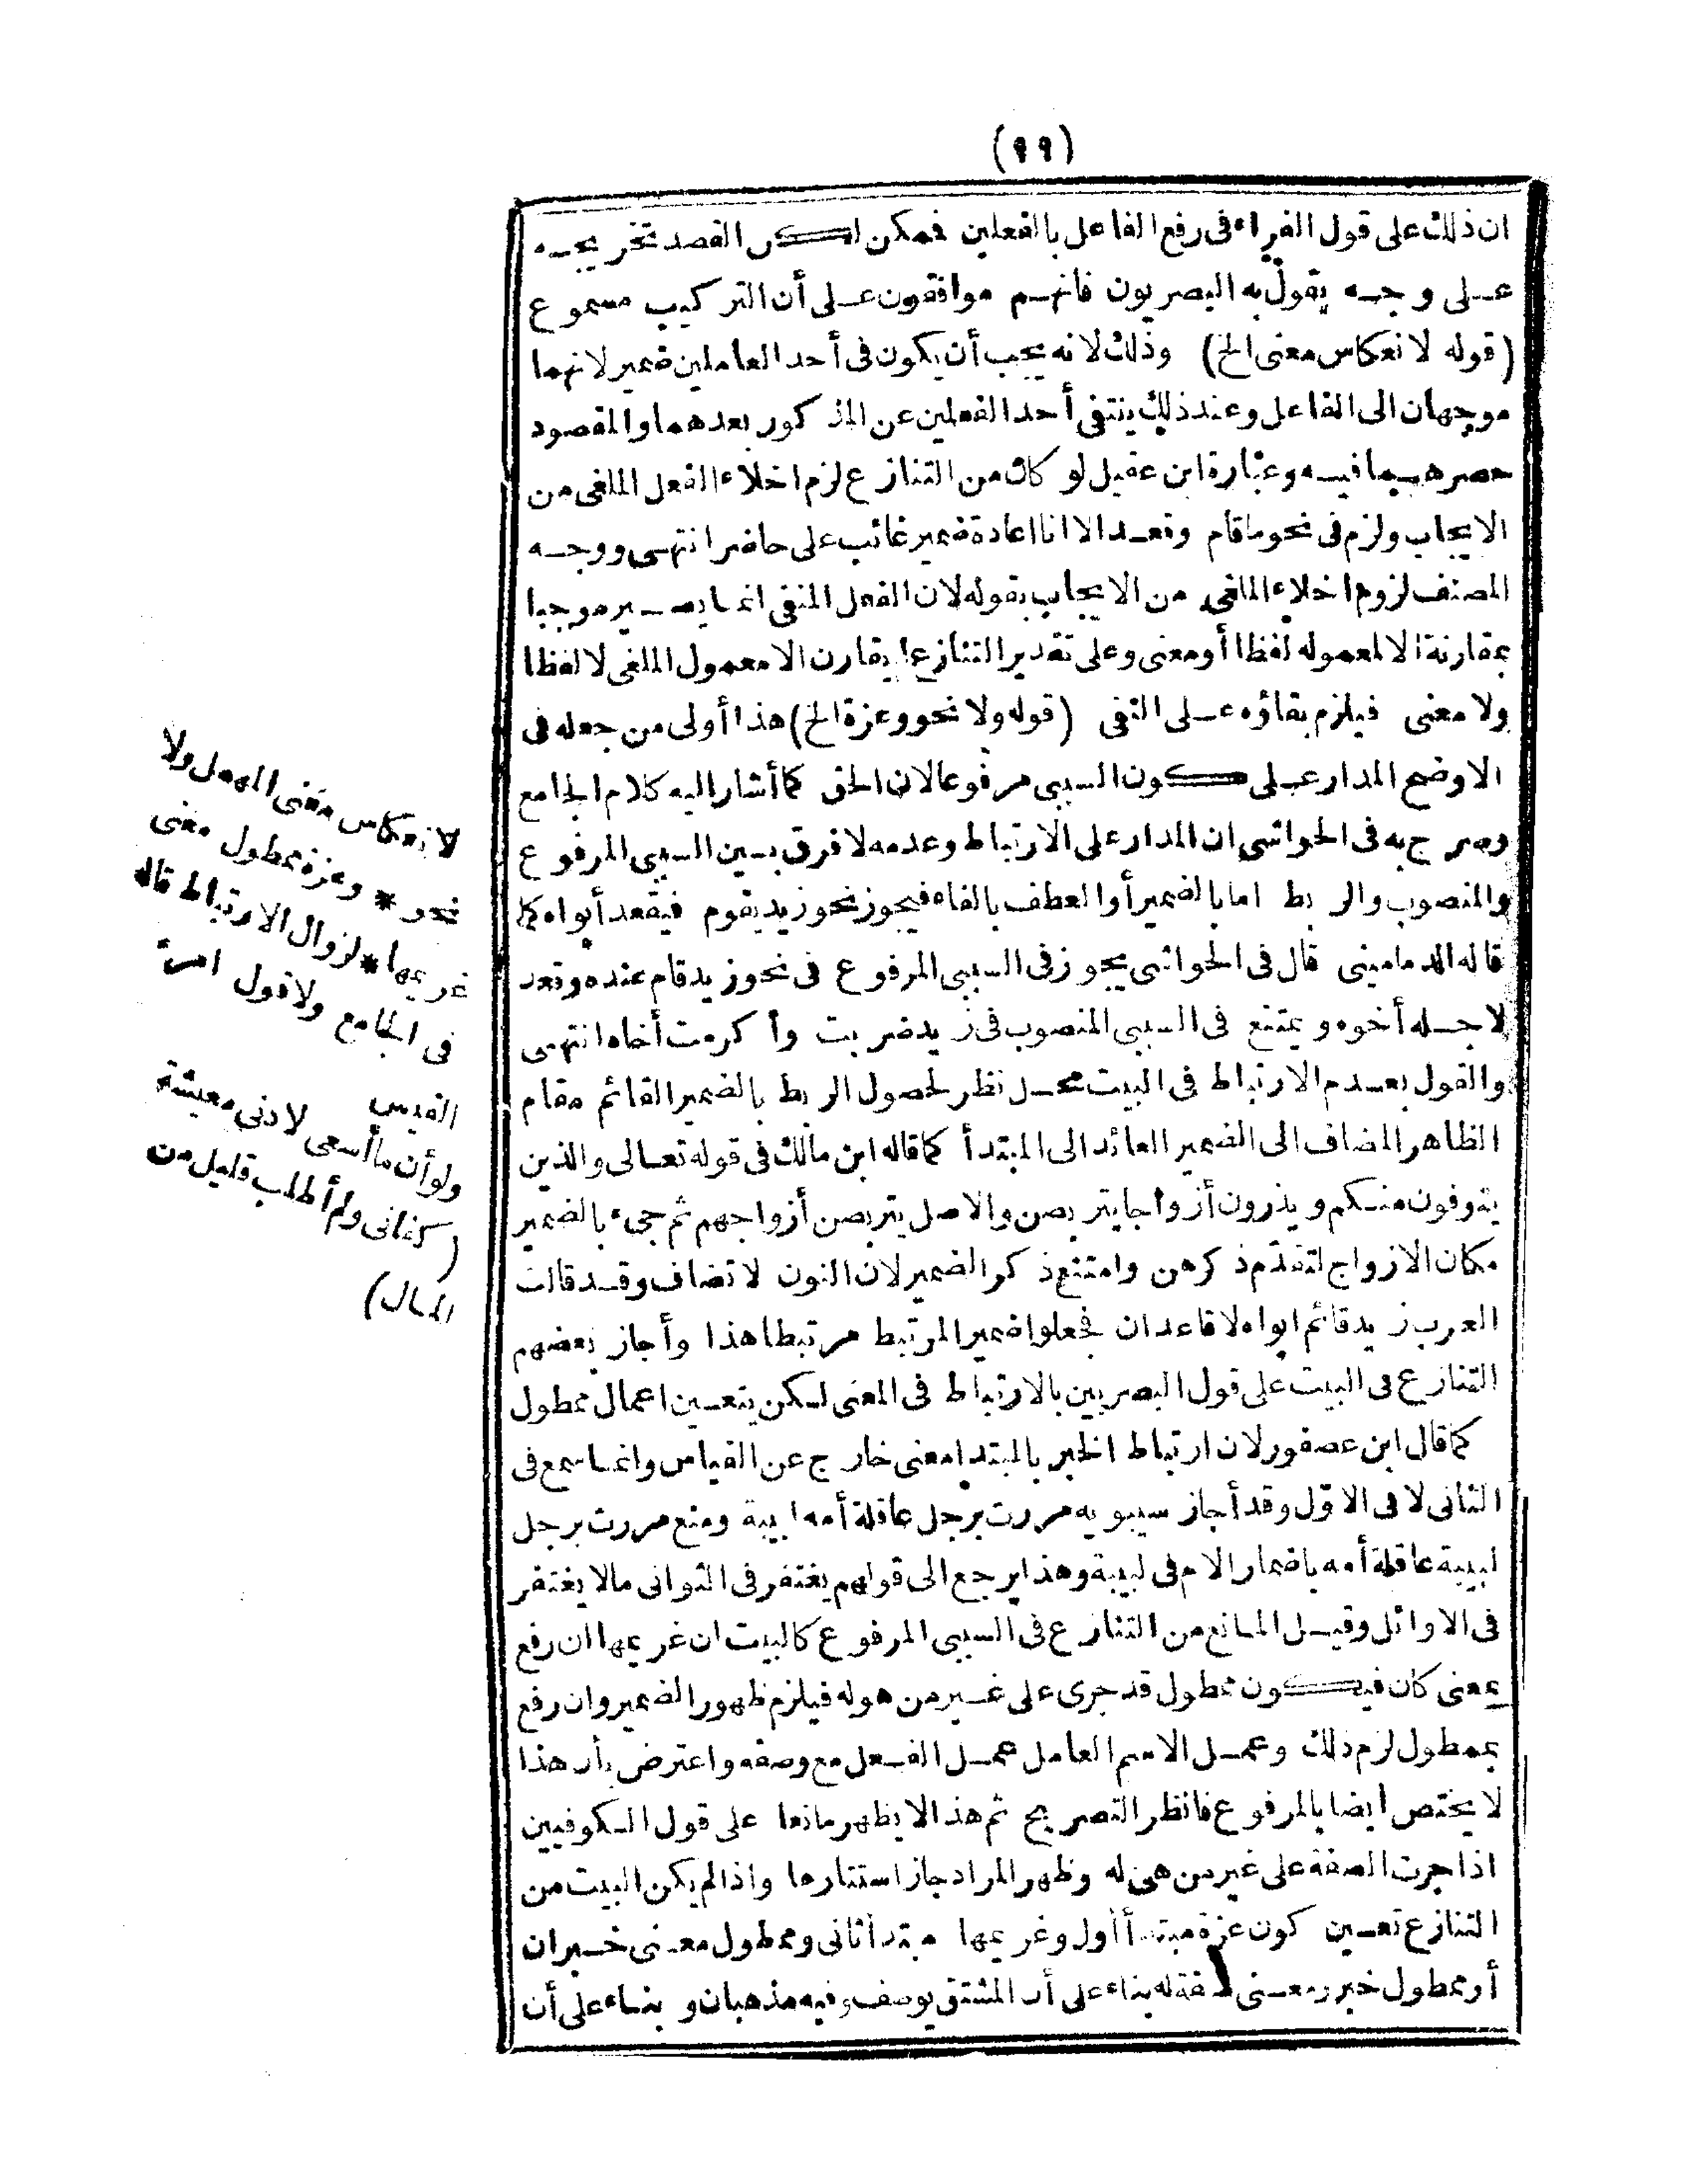 (٩٩)
ان ذلك على قول الفراء فى رفع الفاعل بالفعلين فيمكن لكن القصد تخريجه
على وجه يقول به البصريون فانهم موافقون على أن التركيب مسموع
(قوله لانعكاس معنى الخ) وذلك لانه يجب أن يكون فى أحد العاملين ضمير لانهما
موجهان الى الفاعل وعند ذلك ينتفى أحد الفعلين عن المذكور بعدهما والمقصود
حصرهما فيه وعبارة ابن عقيل لو كان من التنازع لزم اخلاء الفعل الملغى من
الايجاب ولزم فى نحو ما قام وقعد الا انا اعادة ضمير غائب على حاضر انتهى ووجه
المصنف لزوم اخلاء الملغى من الايجاب بقوله لان الفعل المنفى انما يصير موجبا
بمقارنة الا لمعموله لفظا أو معنى وعلى تقدير التنازع لم يقارن الا معمول الملغى لا لفظا
ولا معنى فيلزم بقاؤه على النفى (قوله ولا نحو وعزة الخ) هذا أولى من جعله فى
الاوضح المدار على كون السببى مرفوعا لان الحق كما أشار اليه كلام الجامع
وصرح به فى الحواشى ان المدار على الارتباط وعدمه لا فرق بين السببى المرفوع
والمنصوب والربط اما بالضمير أو العطف بالفاء فيجوز نحو زيد يقوم فيقعد أبواه كما
قاله الدمامينى قال فى الحواشى يجوز فى السببى المرفوع فى نحو زيد قام عنده وقعد
لاجله أخوه ويمتنع فى السببى المنصوب فى زيد ضربت وأكرمت أخاه انتهى
والقول بعدم الارتباط فى البيت محل نظر لحصول الربط بالضمير القائم مقام
الظاهر المضاف الى الضمير العائد الى المبتدأ كما قاله ابن مالك فى قوله تعالى والذين
يتوفون منكم ويذرون أزواجا يتربصن والاصل يتربصن أزواجهم ثم جىء بالضمير
مكان الازواج لتقدم ذكرهن وامتنع ذكر الضمير لان النون لا تضاف وقد قالت
العرب زيد قائم ابواه لا قاعدان فجعلوا ضمير المرتبط مرتبطا هذا وأجاز بعضهم
التنازع فى البيت على قول البصريين بالارتباط فى المعنى لكن يتعين اعمال ممطول
كما قال ابن عصفور لان ارتباط الخبر بالمبتدا معنى خارج عن القياس وانما سمع فى
الثانى لا فى الاول وقد أجاز سيبويه مررت برجل عاقلة أمه لبيبة ومنع مررت برجل
لبيبة عاقلة أمه باضمار الام فى لبيبة وهذا يرجع الى قولهم يغتفر فى الثوانى مالا يغتفر
فى الاوائل وقيل المانع من التنازع فى السببى المرفوع كالبيت ان غريمها ان رفع
بمعنى كان فيكون ممطول قد جرى على غير من هو له فيلزم ظهور الضمير وان رفع
بممطول لزم ذلك وعمل الاسم العامل عمل الفعل مع وصفه واعترض بأن هذا
لا يختص ايضا بالمرفوع فانظر التصريح ثم هذا لا يظهر مانعا على قول الكوفيين
اذا جرت الصفة على غير من هى له وظهر المراد جاز استتارها واذا لم يكن البيت من
التنازع تعين كون عزة مبتدأ أول وغريمها مبتدأ ثانى وممطول معنى خبران
أو ممطول خبر ومعنى صفة له بناء على أن المشتق يوصف وفيه مذهبان وبناء على أن
لانعكاس معنى المهمل ولا
نحو * وعزة ممطول معنى
غريمها * لزوال الارتباط قاله
فى الجامع ولا قول امرئ
القيس
ولو أن ما أسعى لادنى معيشة
(كفانى ولم أطلب قليل من
المال)